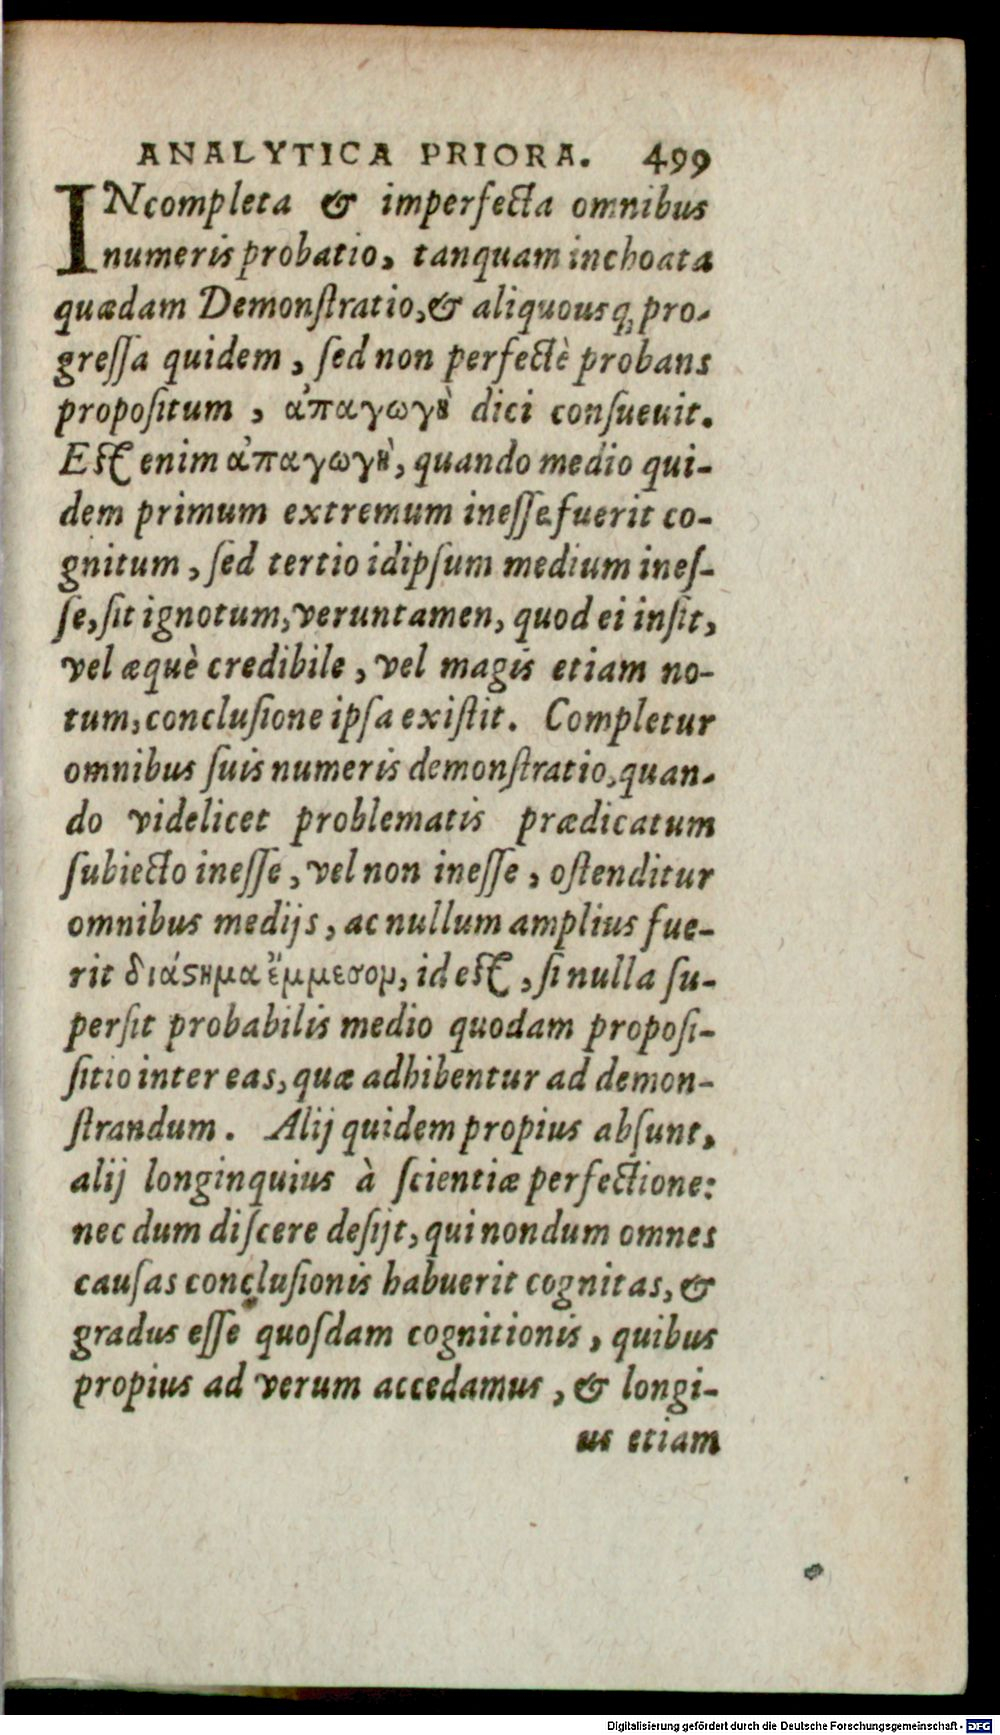 ANALYTICA PRIORA. 499
INcompleta & imperfecta omnibus
numeris probatio, tanquam inchoata
quædam Demonſtratio, & aliquousq; pro-
greſſa quidem, ſed non perfectè probans
propoſitum, ἀπαγωγὴ dici conſueuit.
Eſt enim ἀπαγωγὴ, quando medio qui-
dem primum extremum ineſſe fuerit co-
gnitum, ſed tertio idipſum medium ineſ-
ſe, ſit ignotum, veruntamen, quod ei inſit,
vel æquè credibile, vel magis etiam no-
tum, concluſione ipſa exiſtit. Completur
omnibus ſuis numeris demonſtratio, quan-
do videlicet problematis prædicatum
ſubiecto ineſſe, vel non ineſſe, oſtenditur
omnibus medijs, ac nullum amplius fue-
rit διάϛημα ἔμμεσομ, id eſt, ſi nulla ſu-
perſit probabilis medio quodam propoſi-
ſitio inter eas, quæ adhibentur ad demon-
ſtrandum. Alij quidem propius abſunt,
alij longinquius à ſcientiæ perfectione:
nec dum diſcere deſijt, qui nondum omnes
cauſas concluſionis habuerit cognitas, &
gradus eſſe quoſdam cognitionis, quibus
propius ad verum accedamus, & longi-
us etiam
Digitalisierung gefördert durch die Deutsche Forschungsgemeinschaft - DFG